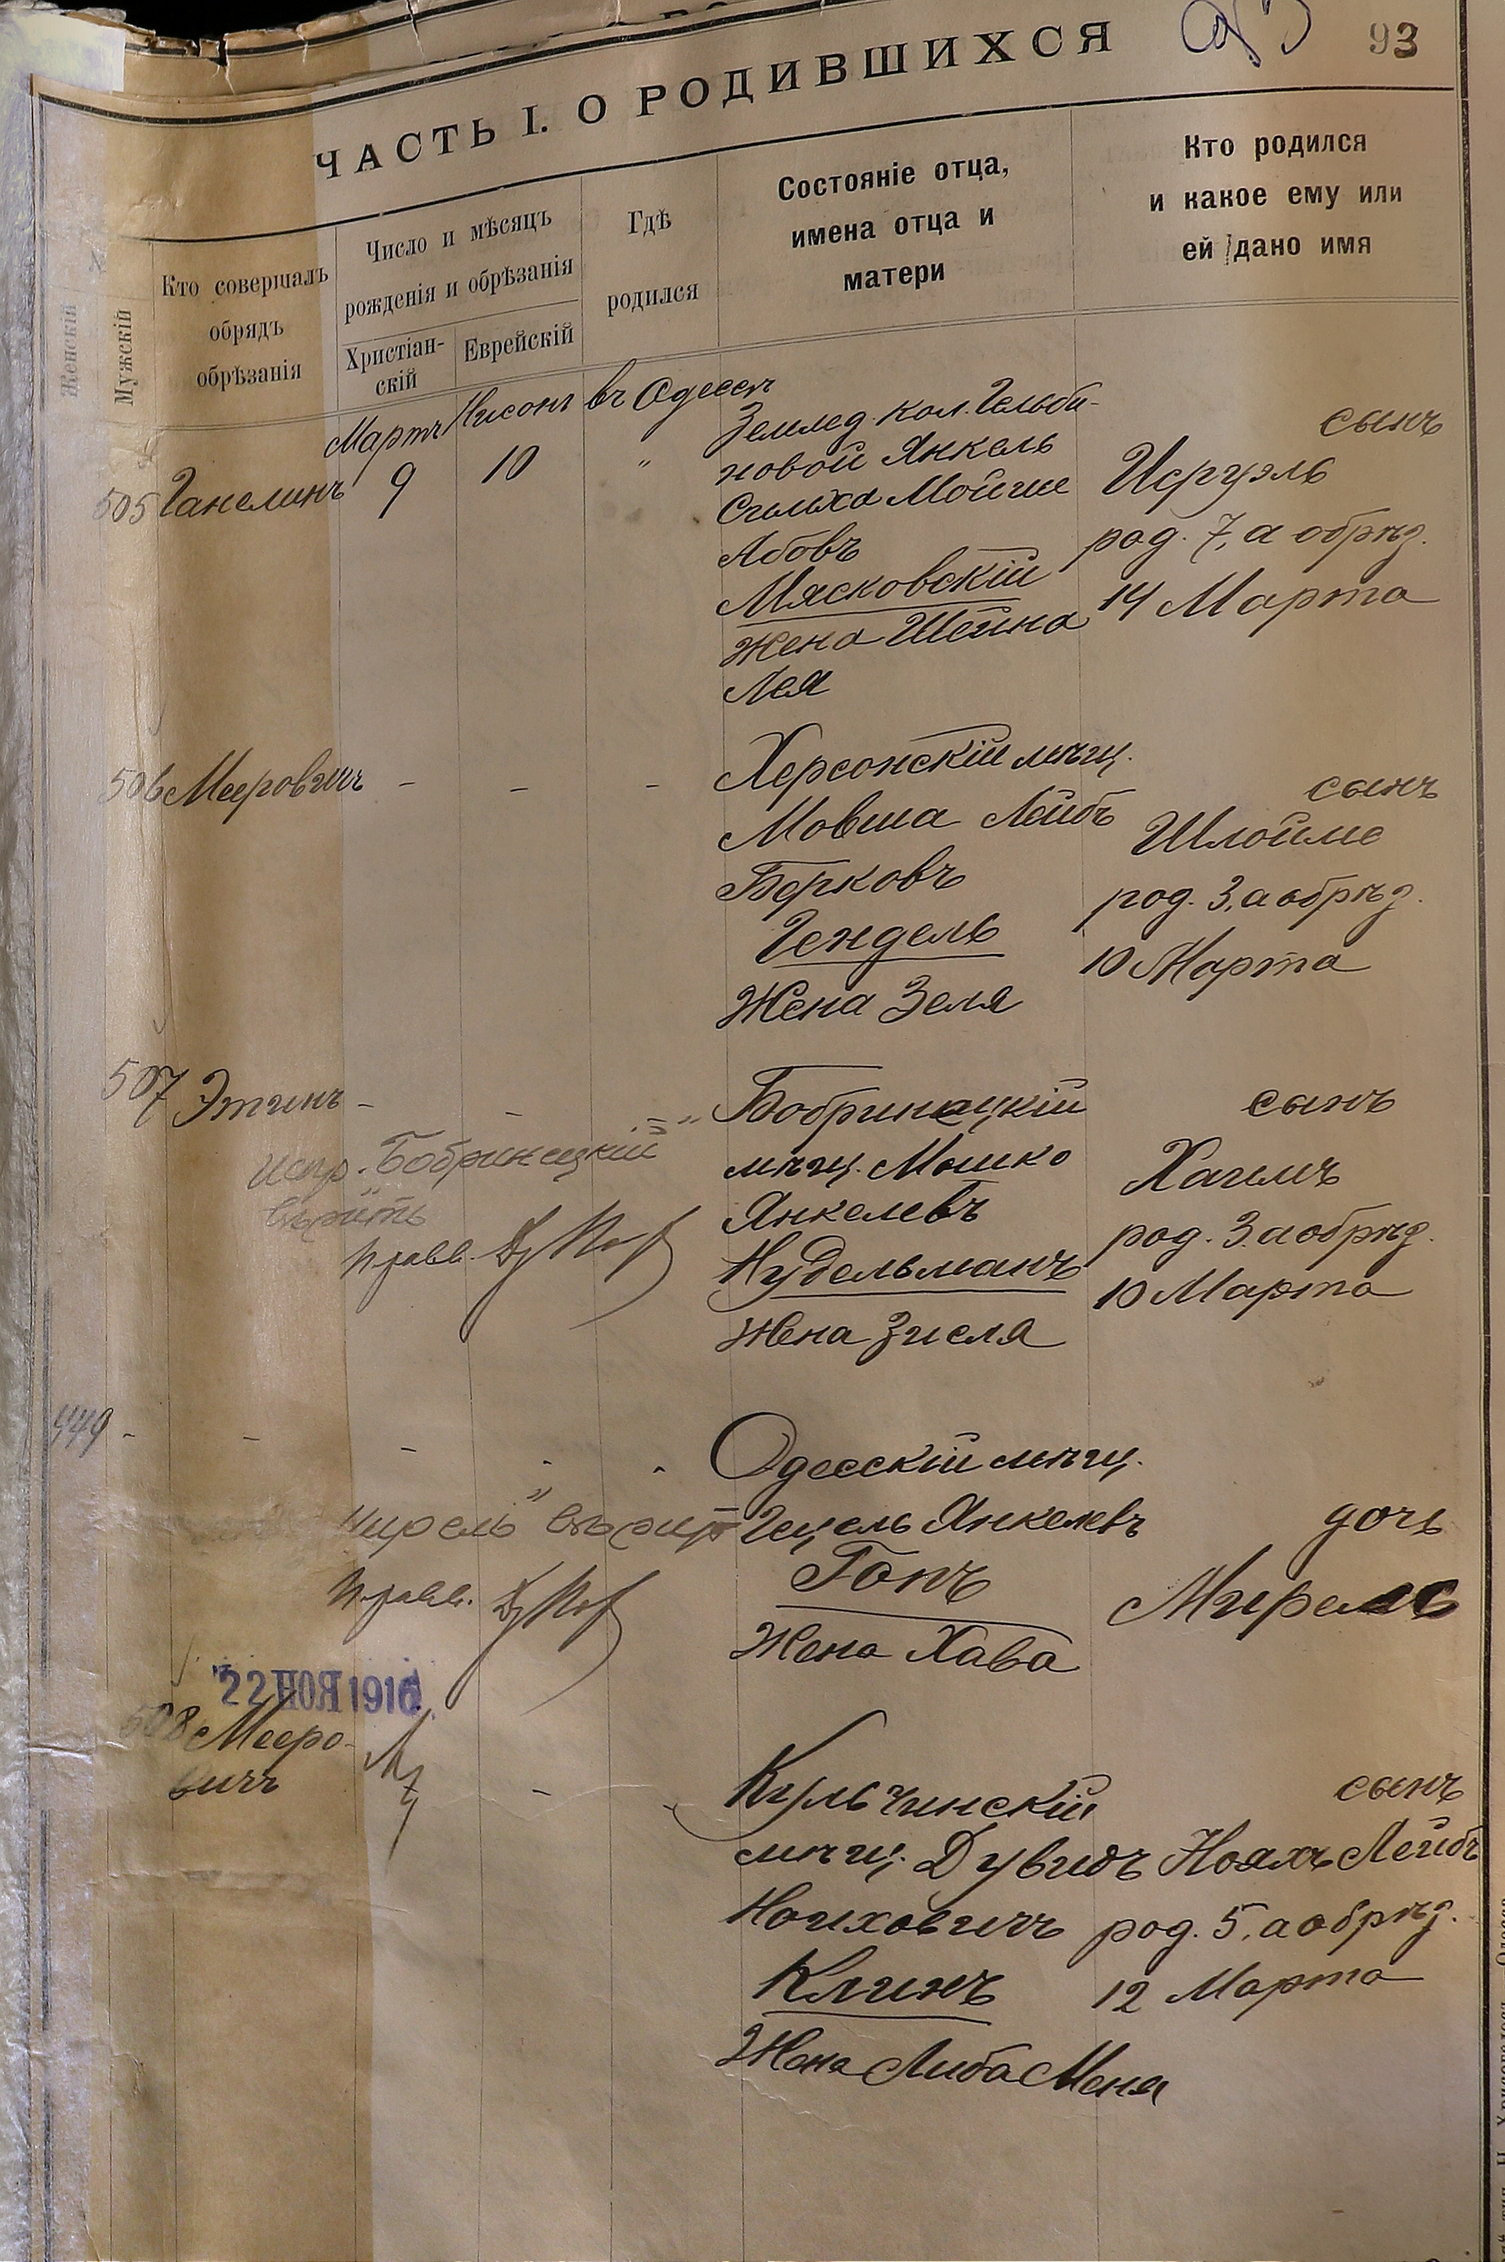 93
ЧАСТЬ I. О РОДИВШИХСЯ
№
Женскій
Мужскій
Кто совершалъ
обрядъ
обрѣзанія
Число и мѣсяцъ
рожденія и обрѣзанія
Христіан-
скій
Еврейскій
Гдѣ
родился
Состояніе отца,
имена отца и
матери
Кто родился
и какое ему или
ей дано имя
Мартъ Нисонъ въ Одессѣ
505 Ганелинъ 9 10 "
Землед. кол. Гельби-
новой Янкель
Сильха Мойше
Абовъ
Мясковскій
жена Шейна
Лея
сынъ
Исруэль
род. 7, а обрѣз.
14 Марта
506 Мееровичъ - - -
Херсонскій мѣщ.
Мовша Лейбъ
Берковъ
Гендель
Жена Зеля
сынъ
Шлойме
род. 3, а обрѣз.
10 Марта
507 Этинъ - - "
Бобринецкій
мѣщ. Мошко
Янкелевъ
Нудельманъ
жена Зисля
сынъ
Хаимъ
род. 3, а обрѣз.
10 Марта
испр. "Бобринецкій"
вѣрить
449 - - - - -
Одесскій мѣщ.
Гецель Янкелевъ
Гопъ
Жена Хава
дочь
Мирель
"Мирель"
22 НОЯ 1916
508 Мееро-
вичъ - -
Кульчинскій
мѣщ. Дувидъ
Ноиховичъ
Клинъ
Жена Либа Меня
сынъ
Нояхъ Лейбъ
род. 5, а обрѣз.
12 Марта